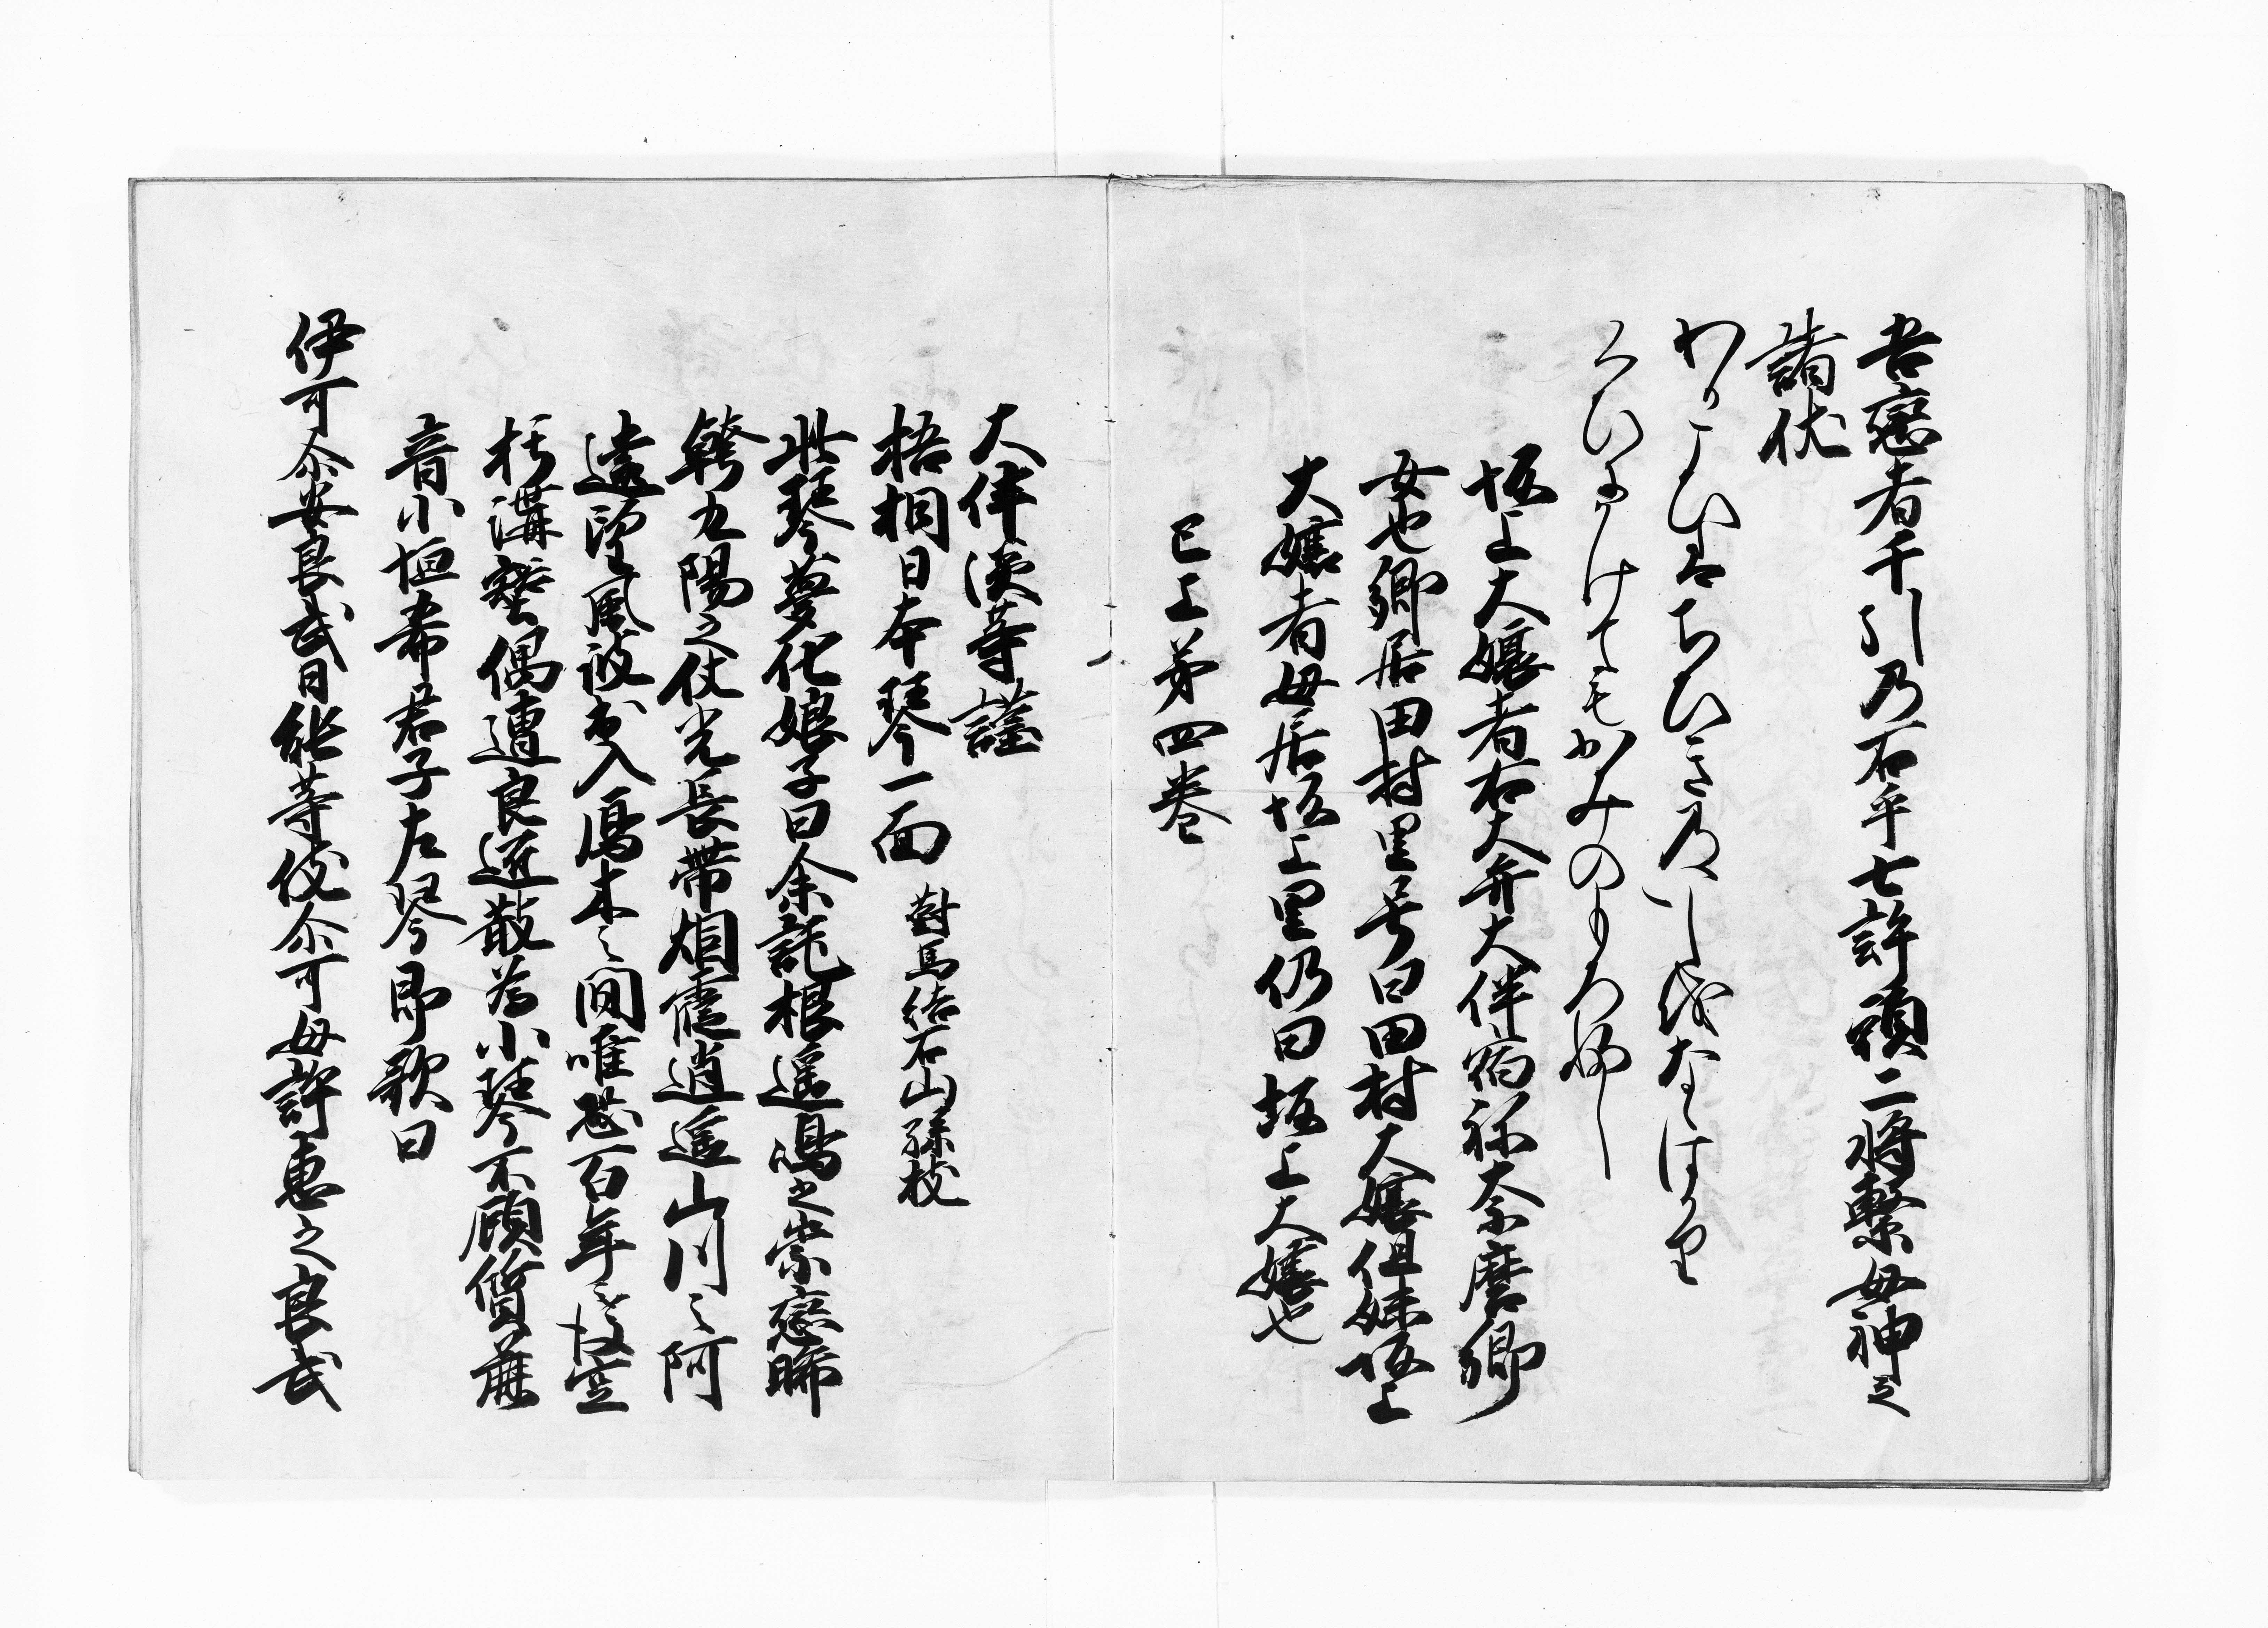 吾戀者千引乃石乎七許頸二将繫母神之
諸伏
わかこひはちひきのいしをなゝはかり
くひにかけてもかみのもろふし
坂上大嬢者右大弁大伴宿祢奈麿卿
女也卿居田村里号曰田村大嬢但妹坂上
大嬢者母居坂上里仍曰坂上大嬢也
已上第四巻
大伴淡等謹
梧桐日本琴一面 對馬結石山孫枝
此琴夢化娘子曰余託根遥嶋之崇巒晞
幹九陽之休光長帯烟霞逍遥山川之阿
遠望風波出入鴈木之間唯恐百年之後空
朽溝壑偶遭良匠散為小琴不顧質麁
音小恒希君子左琴即歌曰
伊可尓安良武日能等伎尓可母許恵之良武